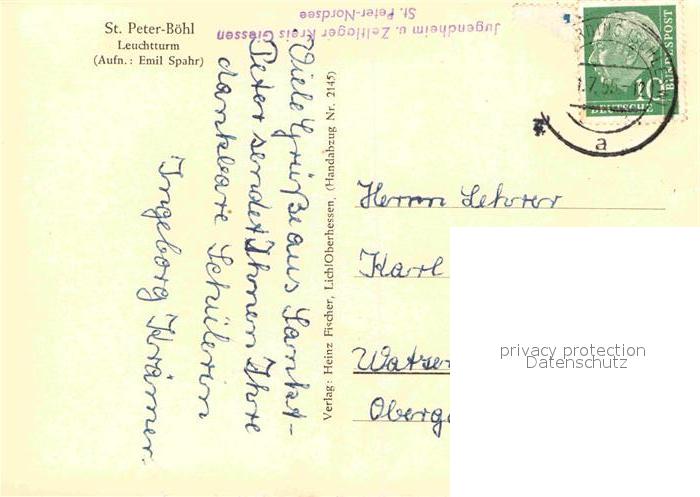 St. Peter-Böhl
Leuchtturm
(Aufn.: Emil Spahr)
Jugendheim u. Zeltlager Kreis Giessen
St. Peter-Nordsee
Viele Grüße aus Sankt-
Peter sendet Ihnen Ihre
dankbare Schülerin
Ingeborg Krämer.
Verlag: Heinz Fischer, Lich/Oberhessen. (Handabzug Nr. 2145)
10
DEUTSCHE
BUNDESPOST
a
Herrn Lehrer
Karl
Watzen
Oberg
privacy protection
Datenschutz